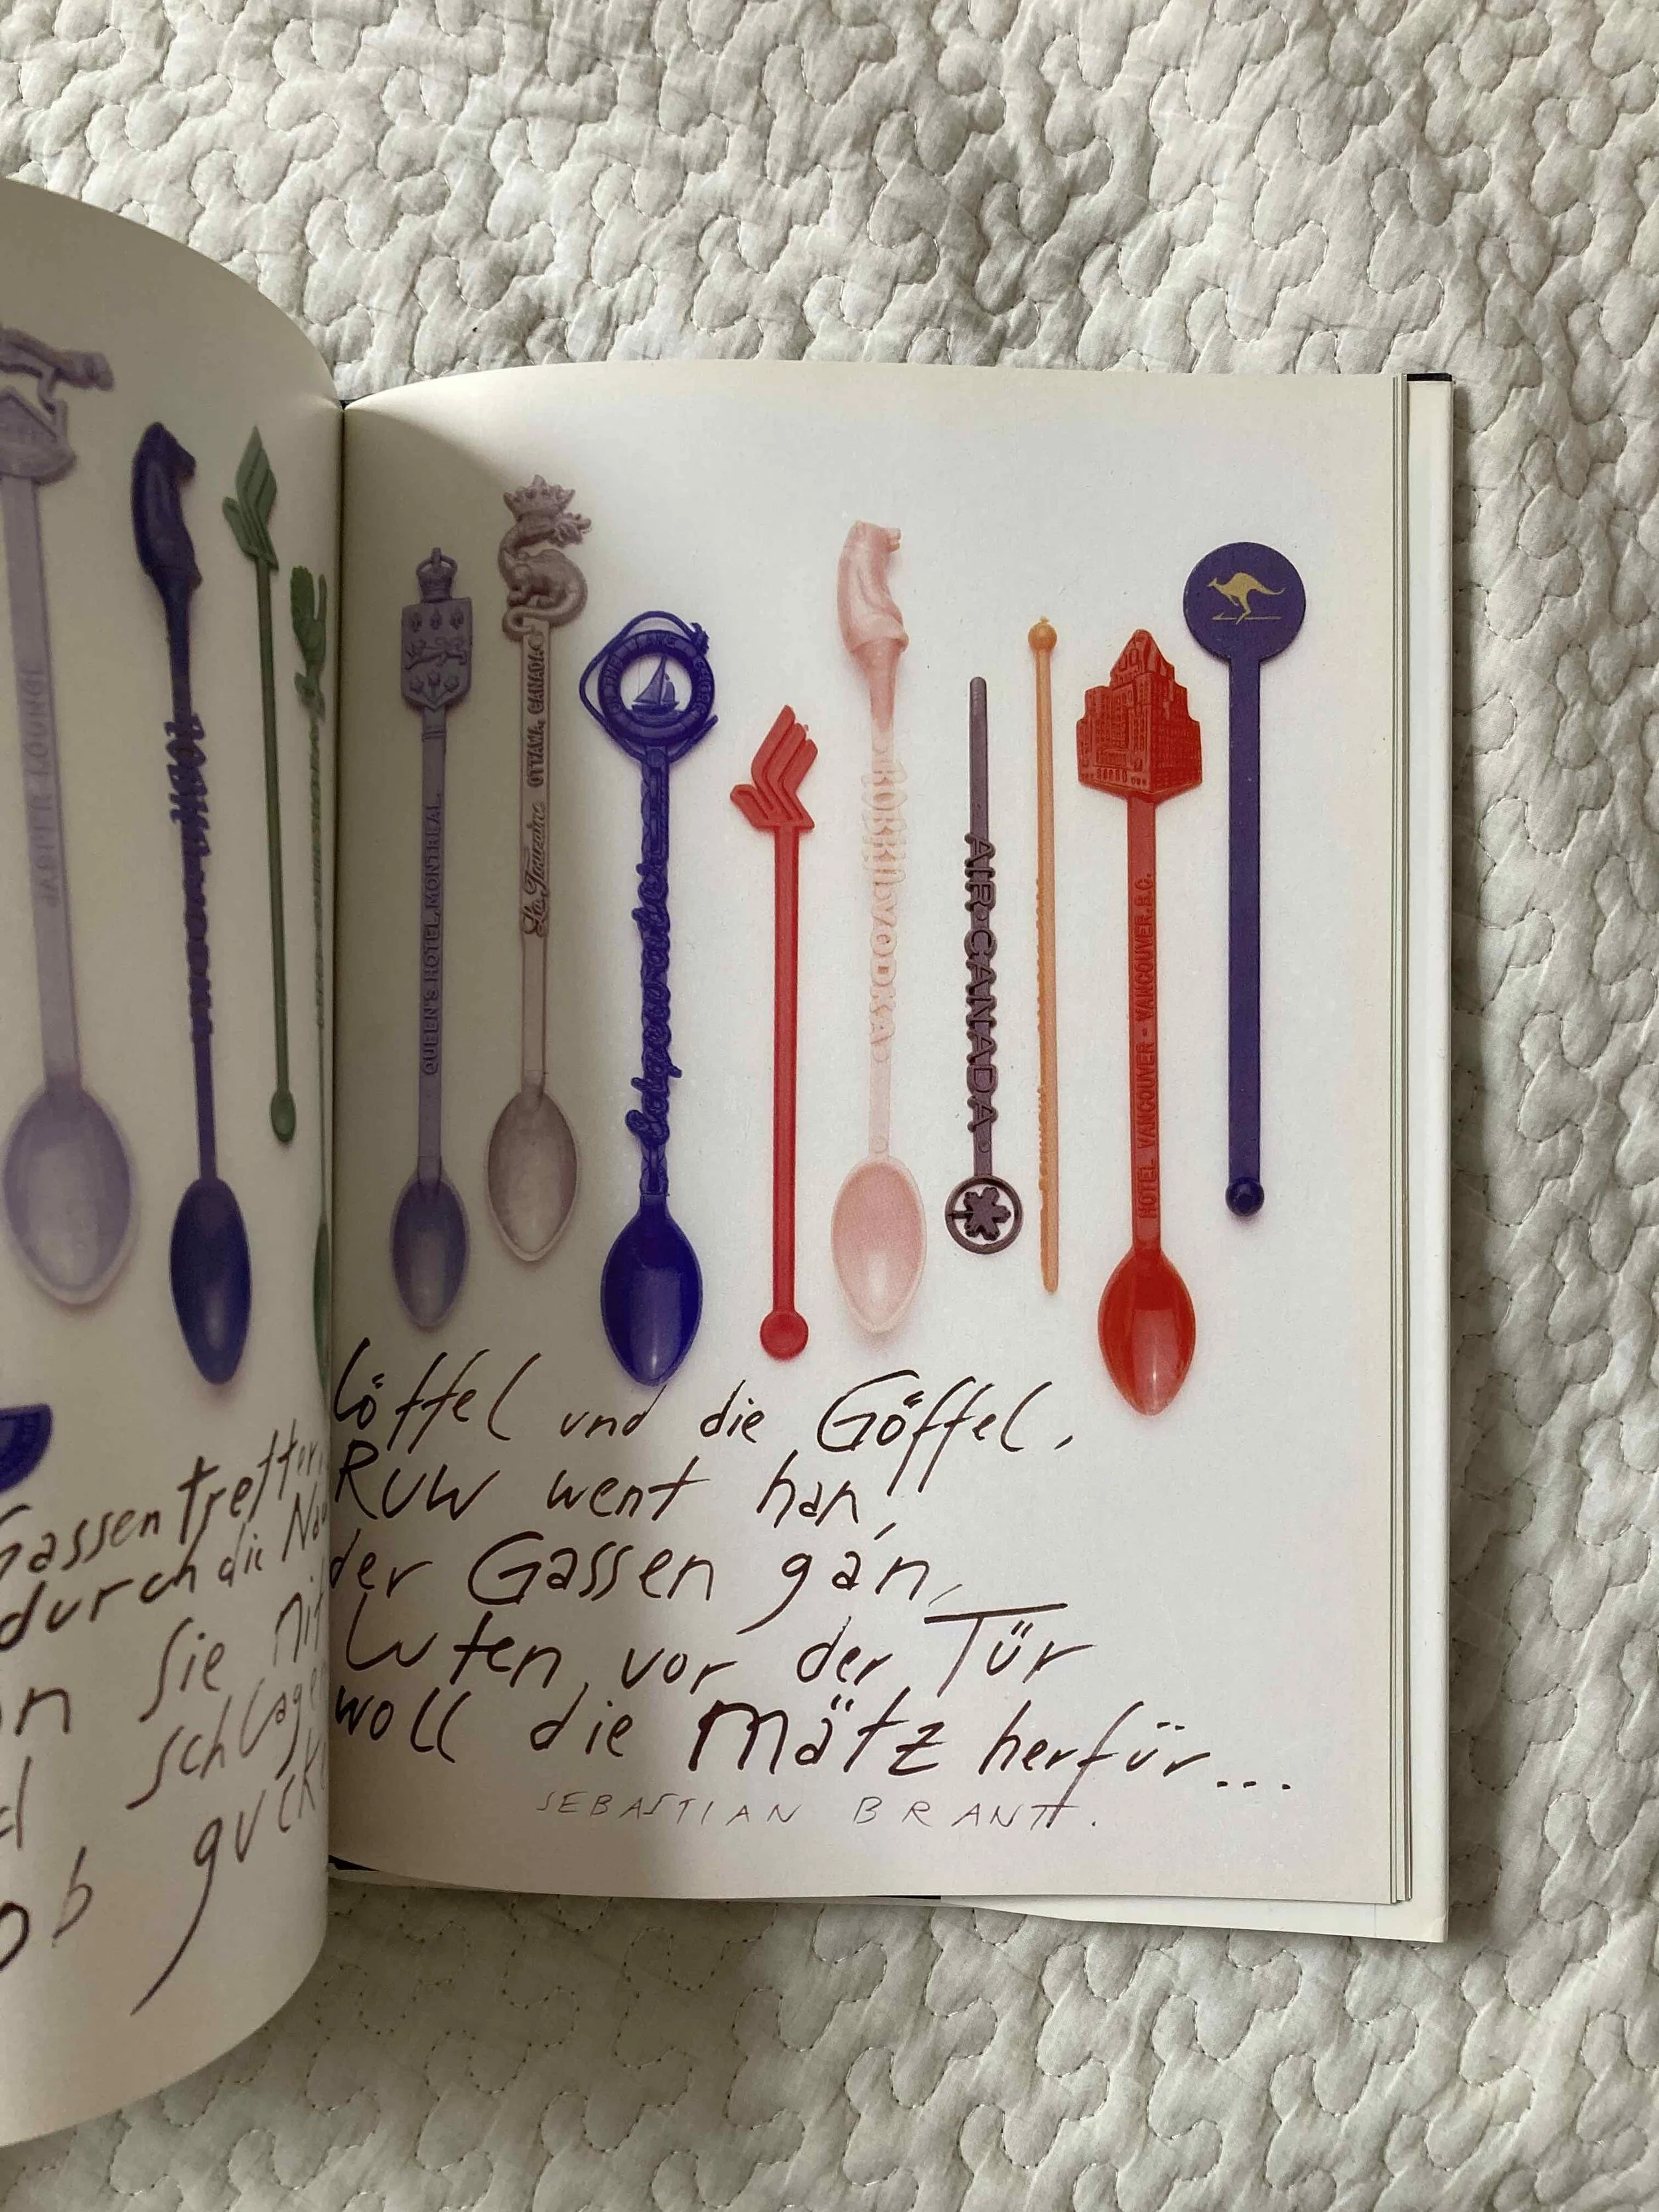 Gassentretter,
durch die
n sie mit
schlage
ob gucke
QUEEN'S HOTEL, MONTREAL
La Touraine OTTAWA, CANADA
Edgewater
KORSKI VODKA
AIR CANADA
HOTEL VANCOUVER - VANCOUVER, B.C.
löffel und die Göffel,
RUW went han,
der Gassen gan,
luten vor der Tür
woll die Mätz herfür...
SEBASTIAN BRANT.